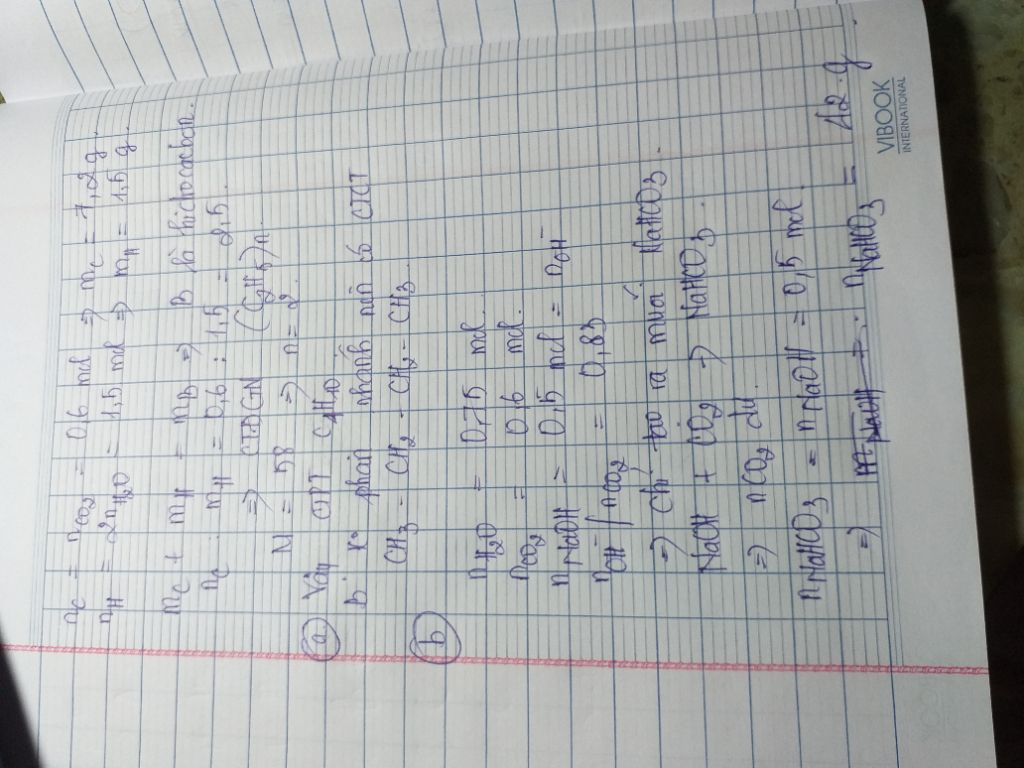 nC = nCO2 = 0,6 mol => mC = 7,2 g.
nH = 2nH2O = 1,5 mol => mH = 1,5 g.
mC + mH = mB => B là hiđrocacbon.
nC : nH = 0,6 : 1,5 = 2,5.
=> CTĐGN (C2H5)n.
M = 58 => n = 2.
a Vậy CTPT C4H10
B k° phân nhánh nên có CTCT
CH3 - CH2 - CH2 - CH3.
b
nH2O = 0,75 mol.
nCO2 = 0,6 mol.
nNaOH = 0,5 mol = nOH-
nOH- / nCO2 = 0,83
=> Chỉ tạo ra muối NaHCO3.
NaOH + CO2 -> NaHCO3.
=> nCO2 dư.
nNaHCO3 = nNaOH = 0,5 mol.
=> mNaHCO3 = 42 g.
VIBOOK
INTERNATIONAL